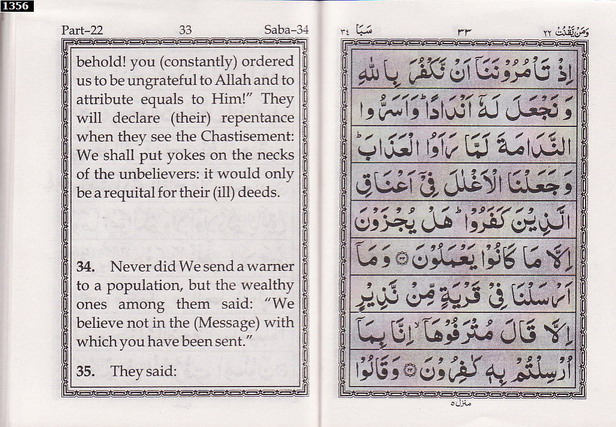 1356
Part-22 33 Saba-34
behold! you (constantly) ordered
us to be ungrateful to Allah and to
attribute equals to Him!” They
will declare (their) repentance
when they see the Chastisement:
We shall put yokes on the necks
of the unbelievers: it would only
be a requital for their (ill) deeds.
34. Never did We send a warner
to a population, but the wealthy
ones among them said: “We
believe not in the (Message) with
which you have been sent.”
35. They said:
وَمَنْ يَّقْنُتْ ٢٢ ٣٣ سَبَا ٣٤
اِذْ تَاْمُرُوْنَنَاۤ اَنْ نَّكْفُرَ بِاللّٰهِ
وَ نَجْعَلَ لَهٗۤ اَنْدَادًا ؕ وَاَسَرُّوا
النَّدَامَةَ لَمَّا رَاَوُا الْعَذَابَ ؕ
وَجَعَلْنَا الْاَغْلٰلَ فِیْۤ اَعْنَاقِ
الَّذِيْنَ كَفَرُوْا ؕ هَلْ يُجْزَوْنَ
اِلَّا مَا كَانُوْا يَعْمَلُوْنَ ﴿٣٣﴾ وَ مَاۤ
اَرْسَلْنَا فِیْ قَرْيَةٍ مِّنْ نَّذِيْرٍ
اِلَّا قَالَ مُتْرَفُوْهَاۤ ۙ اِنَّا بِمَاۤ
اُرْسِلْتُمْ بِهٖ كٰفِرُوْنَ ﴿٣٤﴾ وَقَالُوْا
منزل ٥